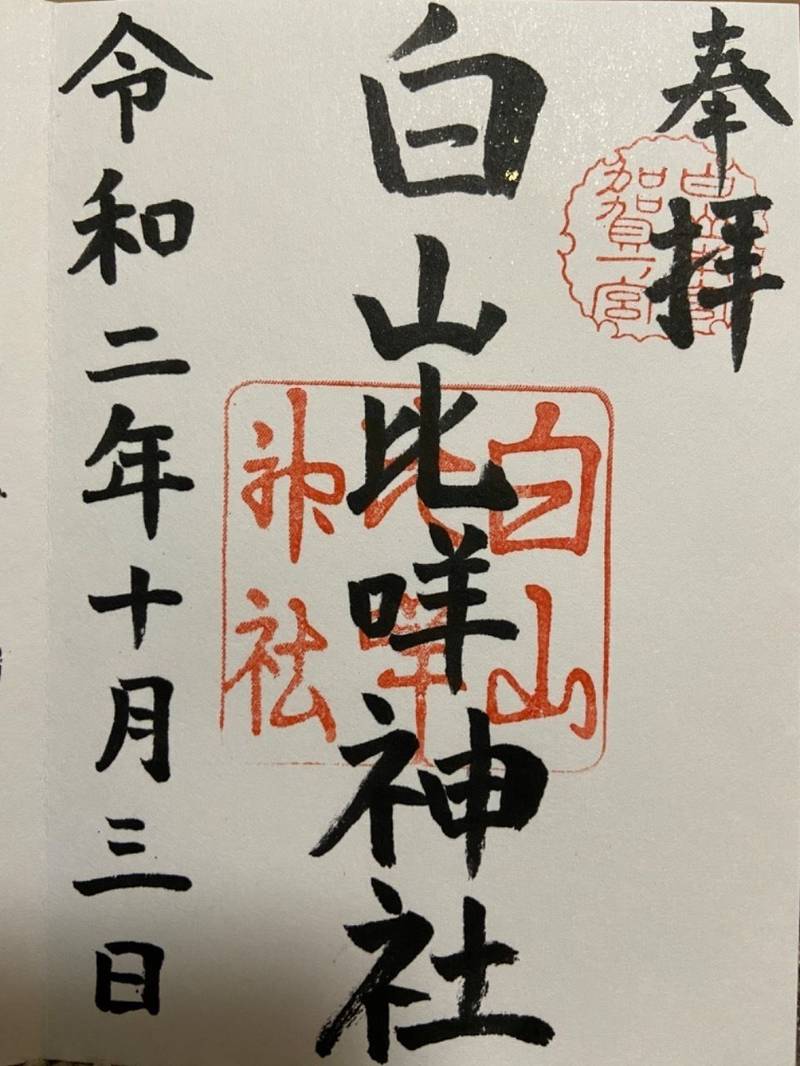 奉拝
加賀一宮
白山比咩神社
白山比咩神社
令和二年十月三日